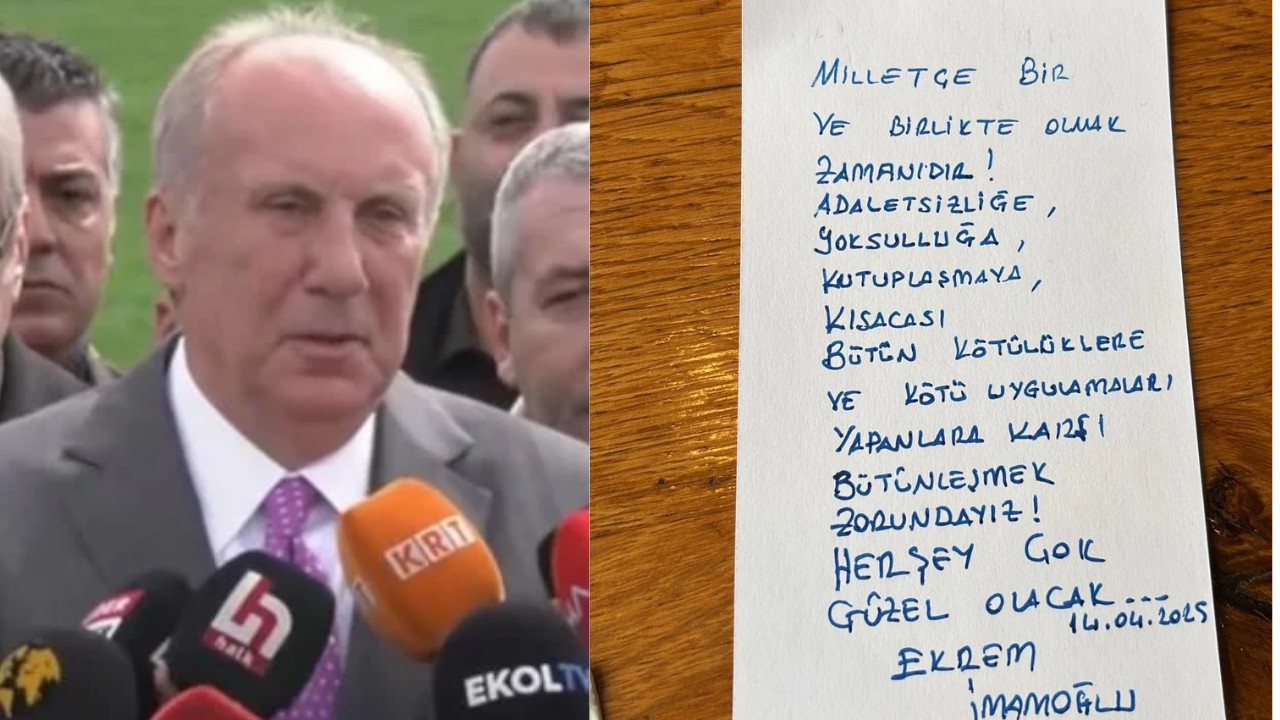 KRT
h
halk
EKOLTV
MİLLETÇE BİR
VE BİRLİKTE OLMAK
ZAMANIDIR!
ADALETSİZLİĞE,
YOKSULLUĞA,
KUTUPLAŞMAYA,
KISACASI
BÜTÜN KÖTÜLÜKLERE
VE KÖTÜ UYGULAMALARI
YAPANLARA KARŞI
BÜTÜNLEŞMEK
ZORUNDAYIZ!
HERŞEY ÇOK
GÜZEL OLACAK...
14.04.2025
EKREM
İMAMOĞLU